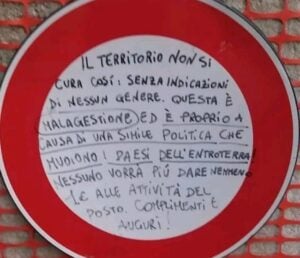 IL TERRITORIO NON SI
CURA COSÍ: SENZA INDICAZIONI
DI NESSUN GENERE. QUESTA È
MALAGESTIONE) ED È PROPRIO A
CAUSA DI UNA SIMILE POLITICA CHE
MUOIONO I PAESI DELL'ENTROTERRA!
NESSUNO VORRÀ PIÙ DARE NEMMENO
1€ ALLE ATTIVITÀ DEL
POSTO. COMPLIMENTI E
AUGURI!